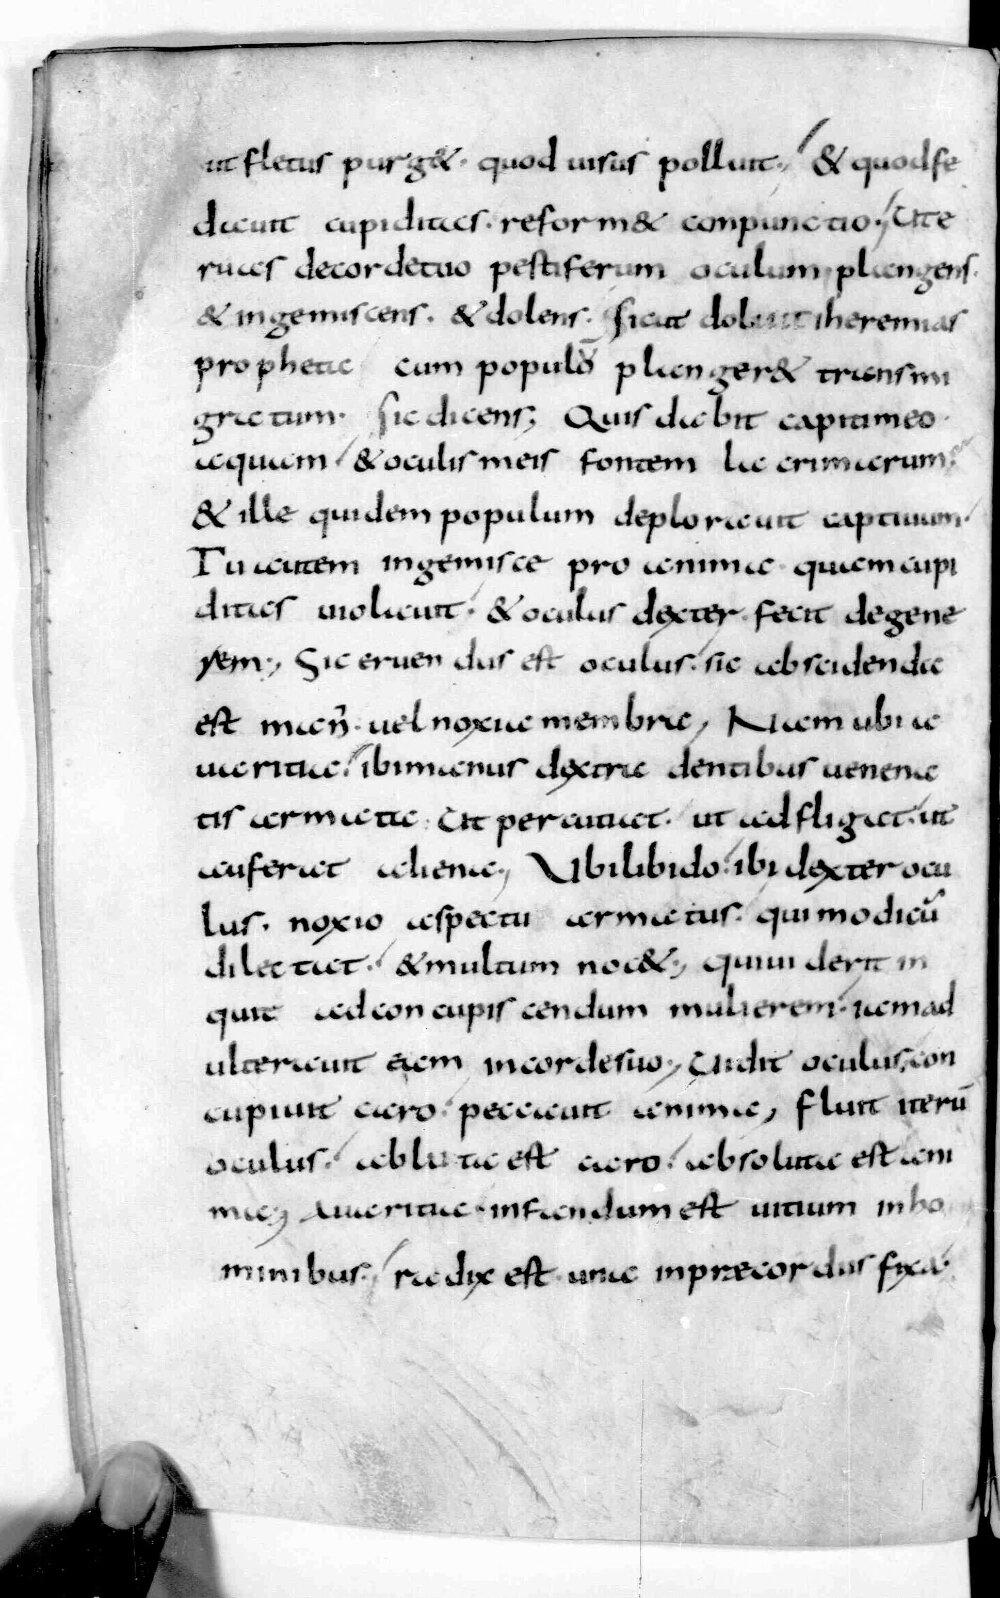 ut fletus purg&. quod uisus polluit., & quodfe
dauit cupiditas. reform& conpunctio., Ute
ruas decordetuo pestiferum oculum plangens.
& ingemiscens. & dolens. sicut doluit iheremias
propheta cum populū planger& transmi
gratum. sic dicens; Quis dabit capitimeo
aquam & oculis meis fontem lacrimarum.
& ille quidem populum deplorauit captiuum.
Tu autem ingemisce pro anima. quam cupi
ditas uiolauit. & oculus dexter. fecit degene
rem., Sic eruendus est oculus. sic abscidenda
est man̄. uel noxia membra, Nam ubi a
uaritia. ibi manus dextra dentibus uenena
tis armata. Ut percutiat. ut adfligat. ut
auferat aliena., Ubi libido. ibi dexter ocu
lus. noxio aspectu armatus. qui modicū
dilectat. & multum noc&., qui uiderit in
quit ad concupiscendum mulierem. iam ad
ulterauit eam incordesuo., Uidit oculus, con
cupiuit caro. peccauit anima, fluit iterū
oculus. abluta est caro. absoluta est ani
ma, Auaritia. infandum est uitium in ho
minibus., radix est una inpraecordiis fixa.